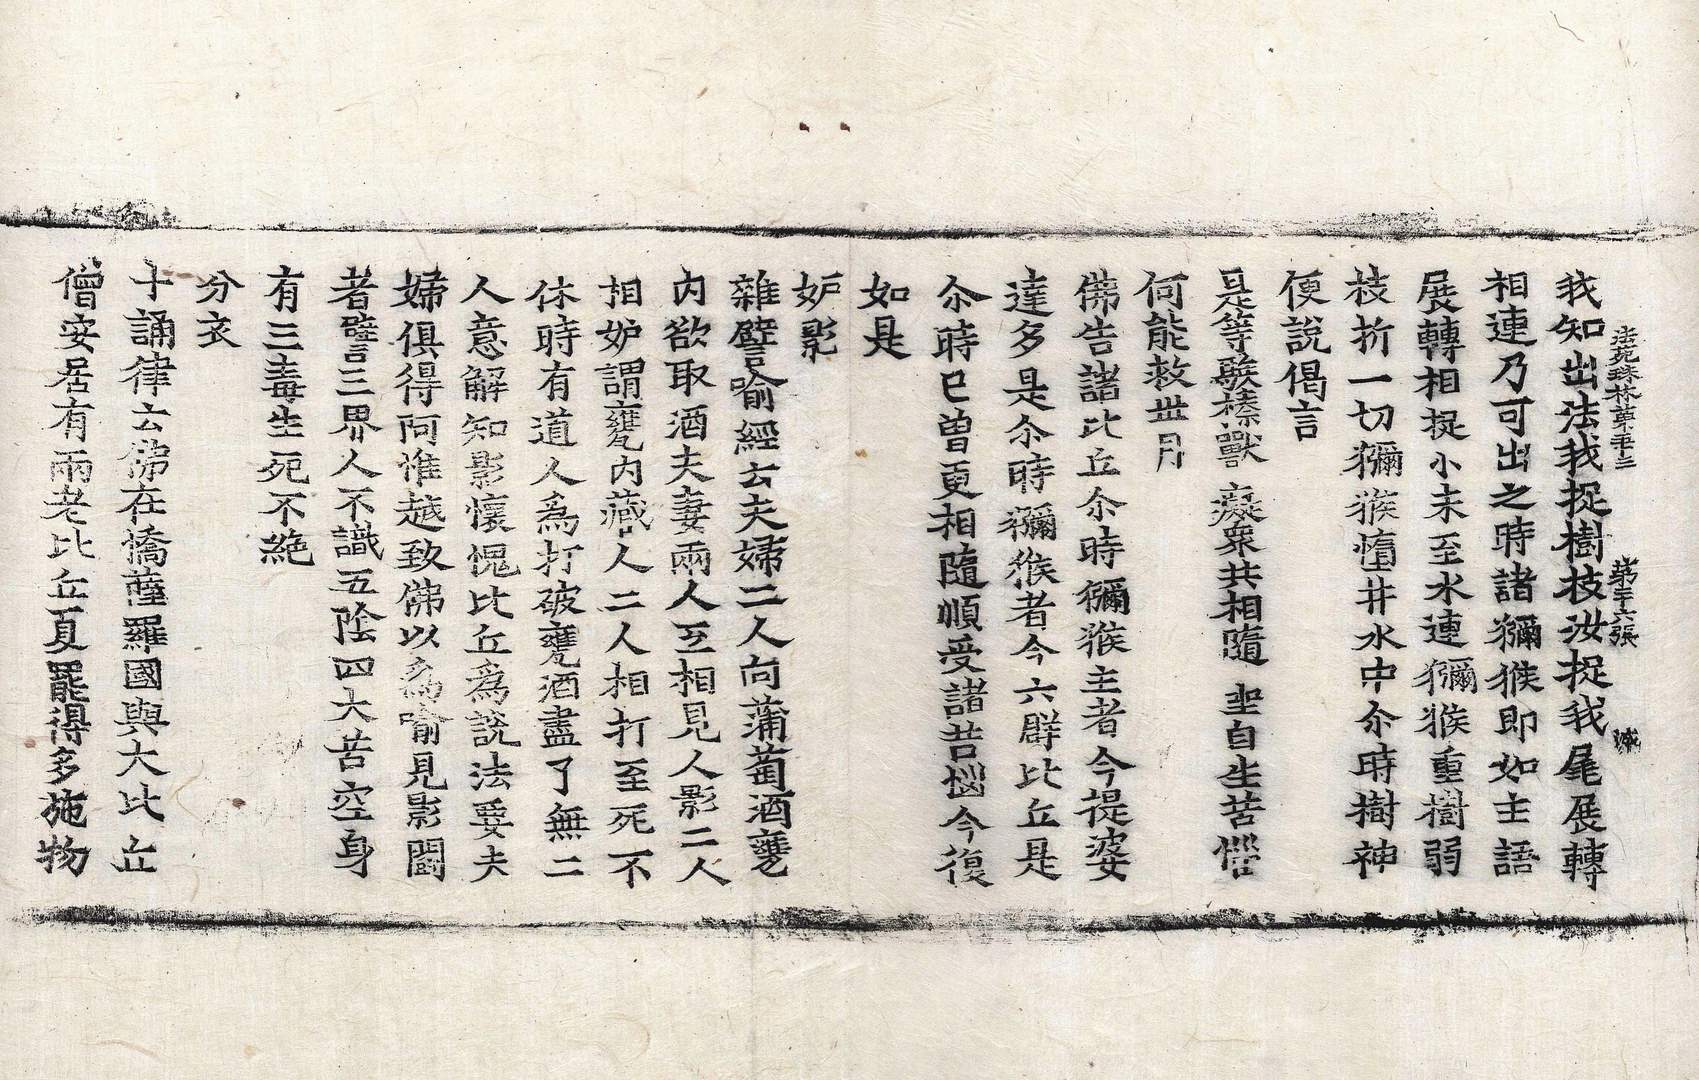 法苑珠林第五十三　第二十六張　陳
我知出法我捉樹枝汝捉我尾展轉
相連乃可出之時諸獼猴即如主語
展轉相捉小未至水連獼猴重樹弱
枝折一切獼猴墮井水中尒時樹神
便說偈言
是等騃榛獸　癡衆共相隨　坐自生苦惱
何能救丗月
佛告諸比丘尒時獼猴主者今提婆
達多是尒時獼猴者今六群比丘是
尒時已曽更相隨順受諸苦惱今復
如是
妒影
雜譬喻經云夫婦二人向蒲萄酒甕
內欲取酒夫妻兩人互相見人影二人
相妒謂甕內藏人二人相打至死不
休時有道人爲打破甕酒盡了無二
人意解知影懷愧比丘爲說法要夫
婦俱得阿惟越致佛以爲喻見影鬭
者譬三界人不識五陰四大苦空身
有三毒生死不絶
分衣
十誦律云佛在憍薩羅國與大比丘
僧安居有兩老比丘夏罷得多施物